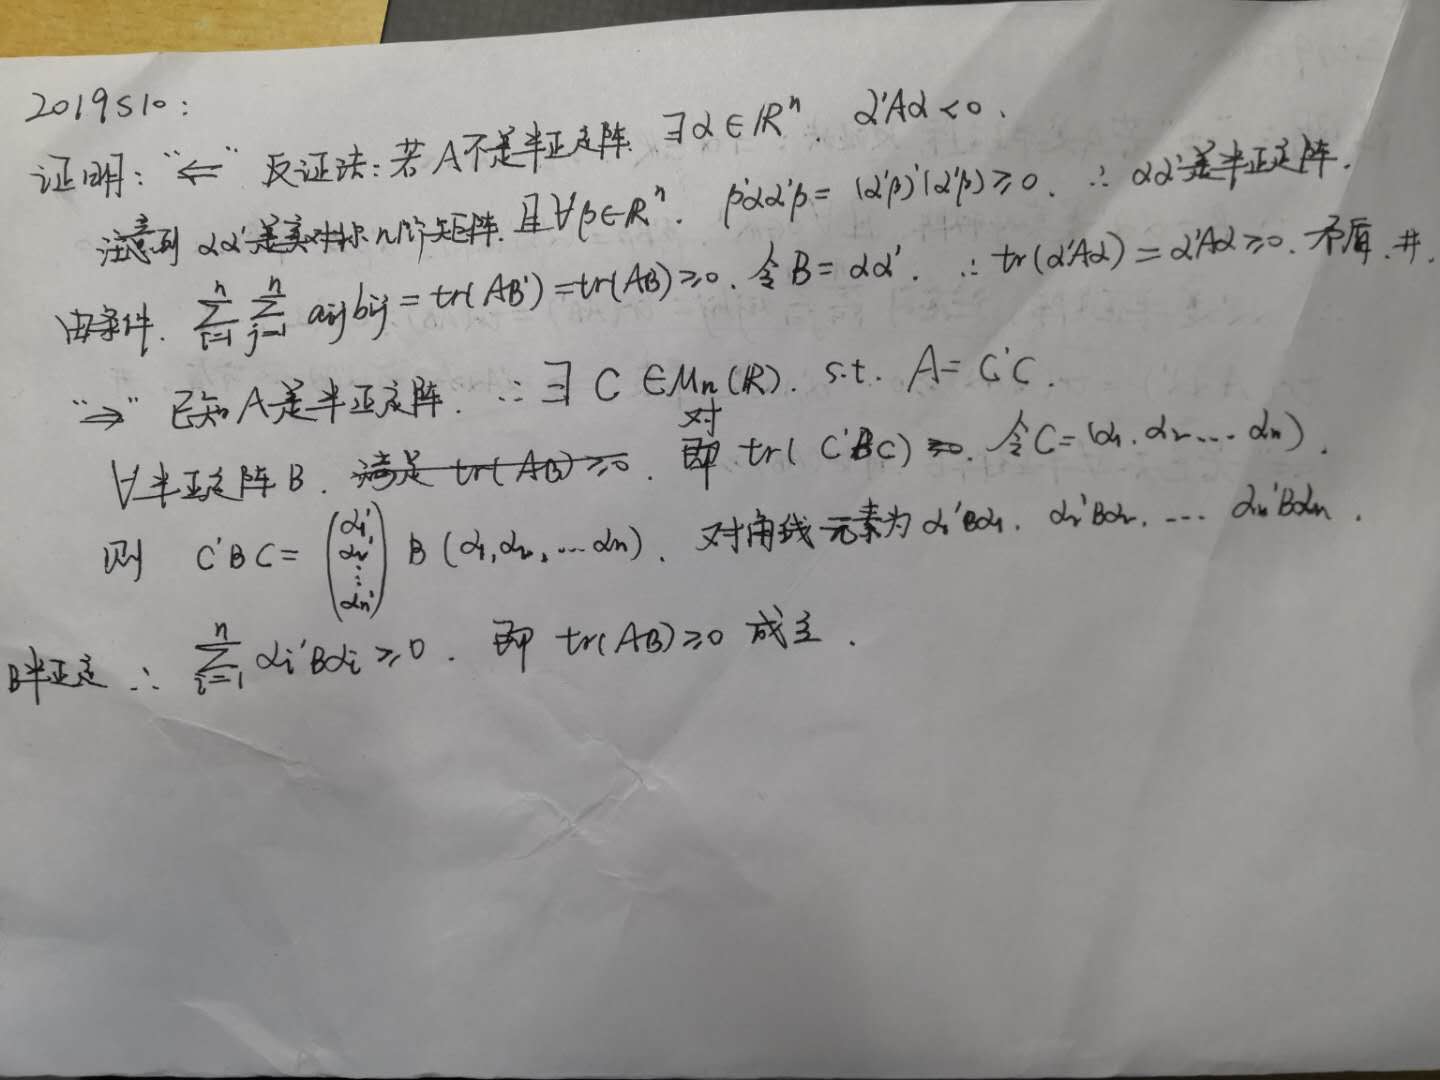 2019S10:
证明: "⇐" 反证法: 若A不是半正定阵. ∃α∈ℝⁿ. α'Aα<0.
注意到 αα'是实对称n阶矩阵. 且∀β∈ℝⁿ. β'αα'β=(α'β)'(α'β)≥0. ∴ αα'是半正定阵.
由条件. ∑_{i=1}^{n} ∑_{j=1}^{n} aijbij = tr(AB')=tr(AB)≥0. 令B=αα'. ∴ tr(α'Aα)=α'Aα≥0. 矛盾.#.
"⇒" 已知A是半正定阵. ∴ ∃ C∈Mn(ℝ). s.t. A=C'C.
∀半正定阵B. 满足 tr(AB)≥0. 即 对 tr(C'BC)≥0. 令C=(α1.α2...αn).
则 C'BC= (α1' α2' ⋮ αn') B (α1,α2,...αn). 对角线元素为α1'Bα1. α2'Bα2. ... αn'Bαn.
B半正定 ∴ ∑_{i=1}^{n} αi'Bαi≥0. 即 tr(AB)≥0 成立.